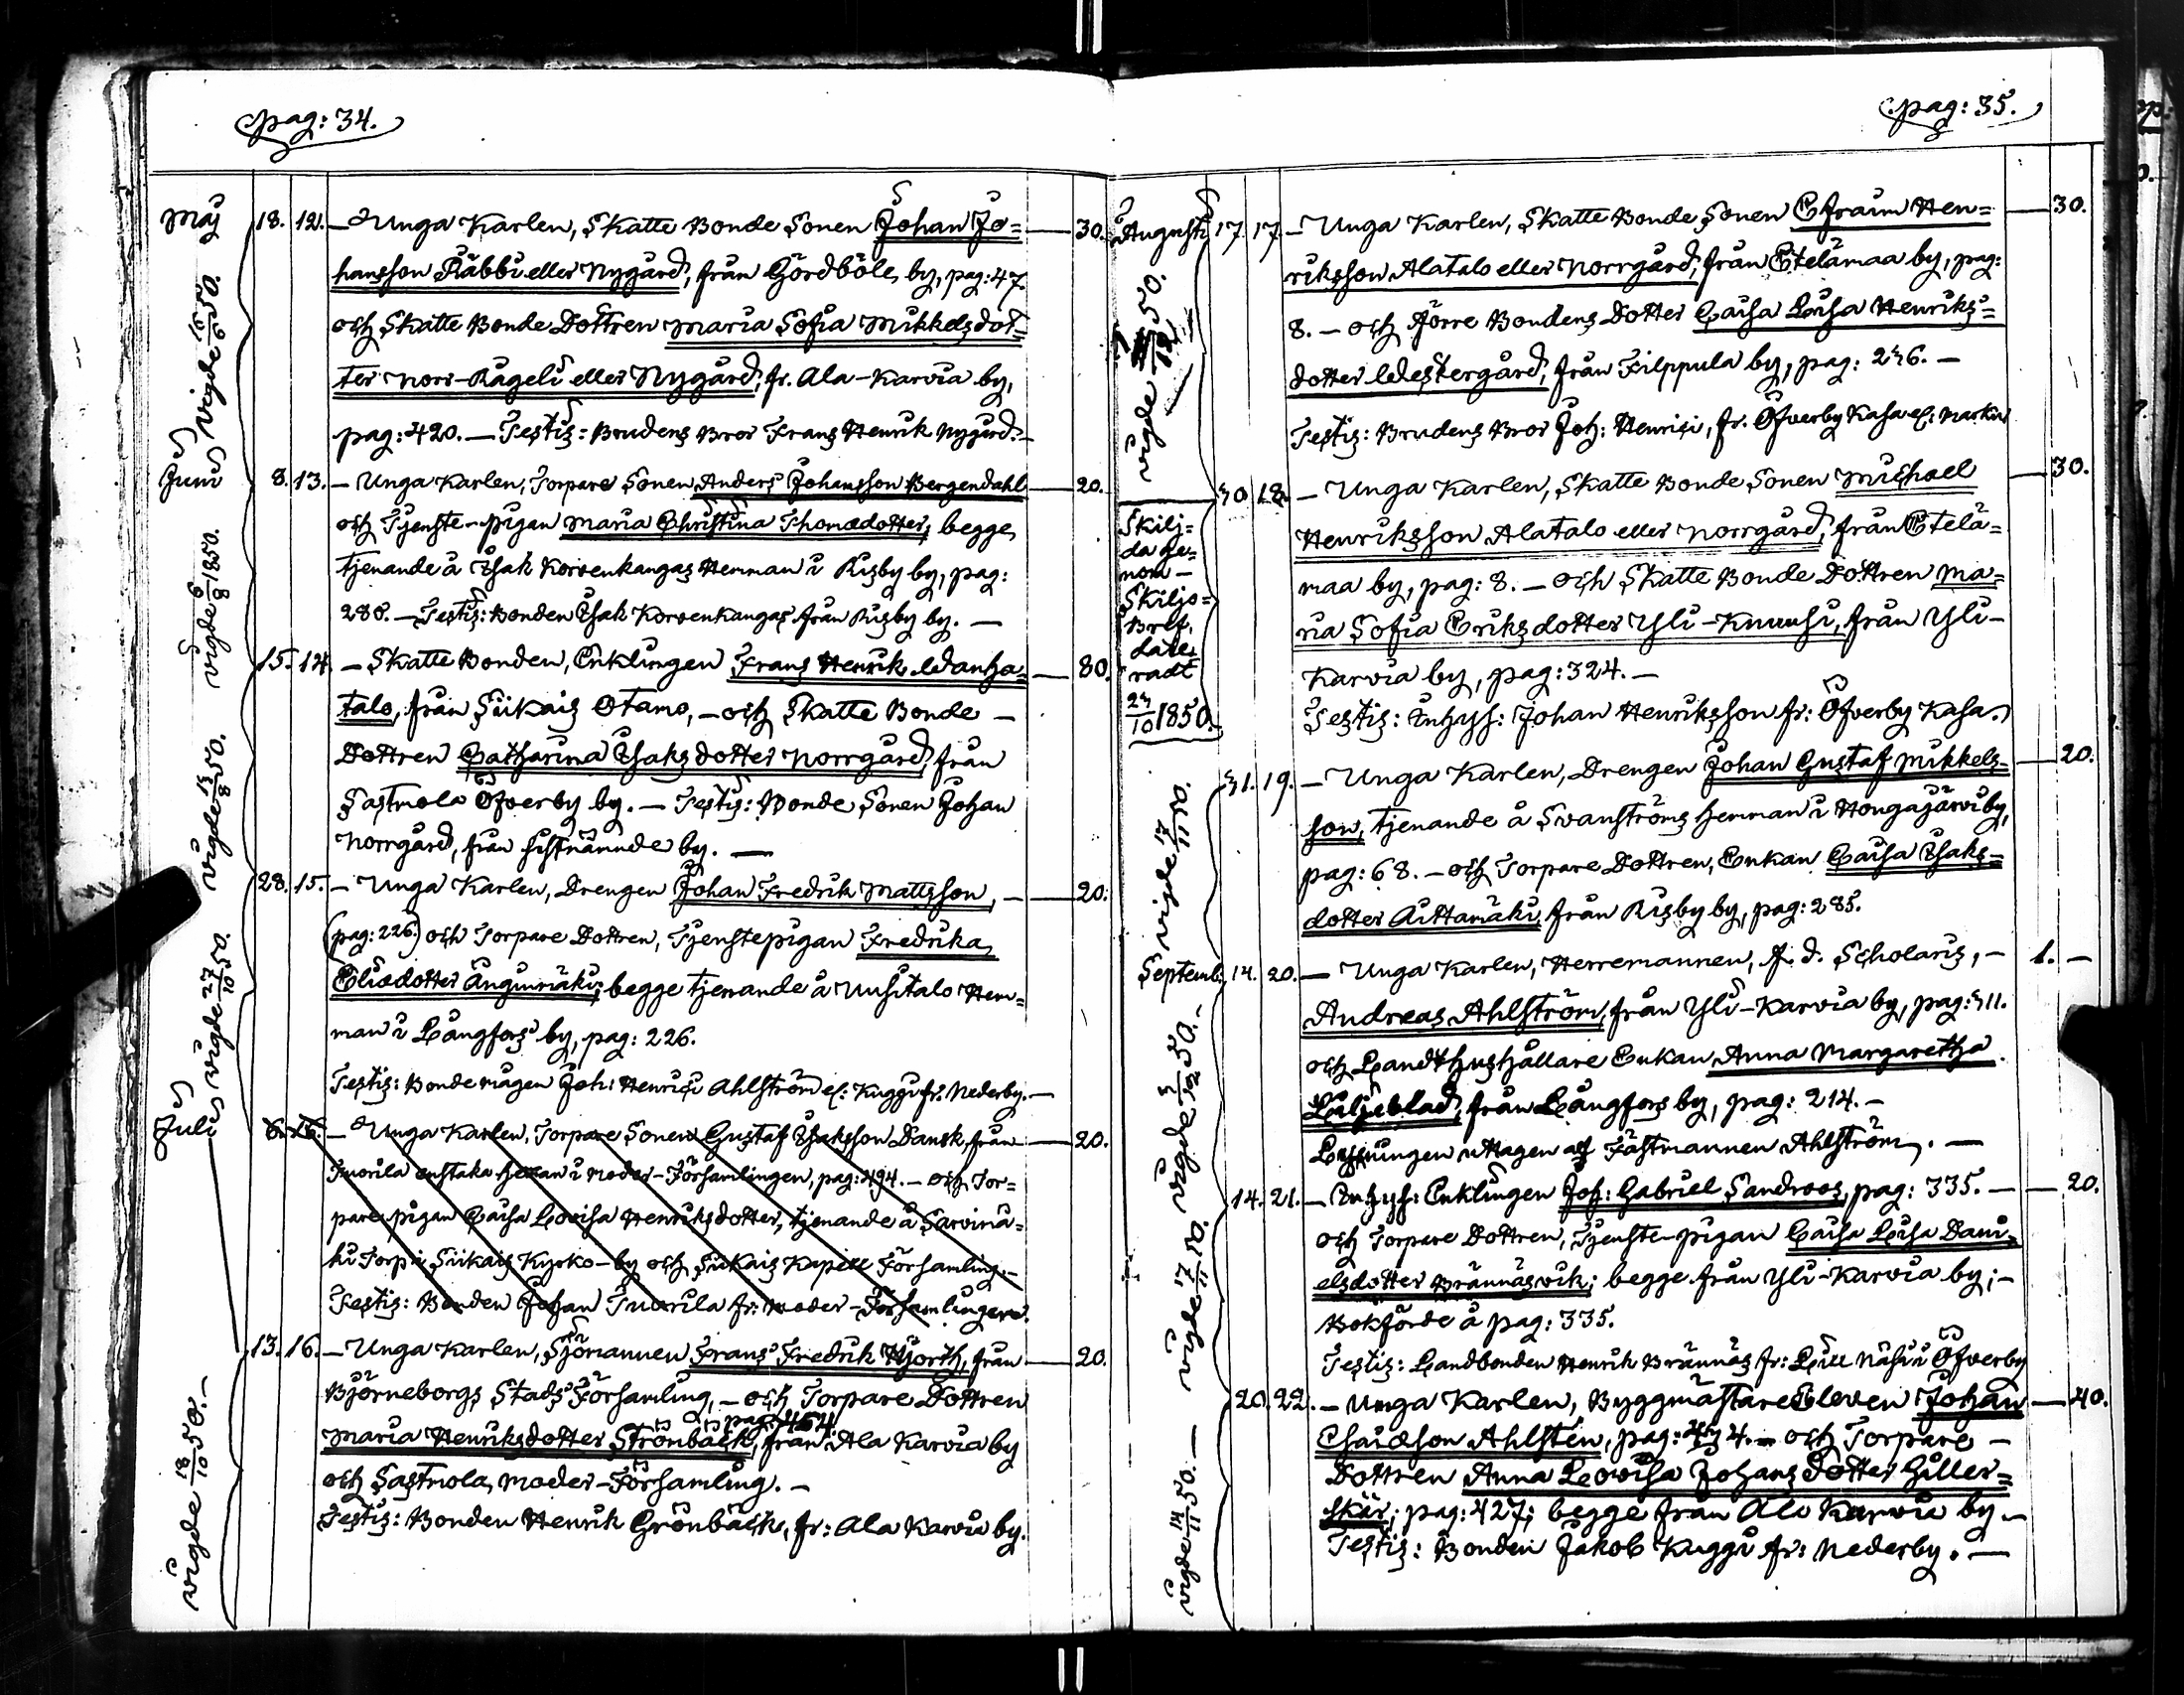 pag: 34.
Maj 18. 12. — Unga Karlen, Skatte Bonde Sonen Johan Jo= — 30.
hansson Räbbi eller Nygård, från Gördböle by, pag: 47.
och Skatte Bonde Dottren Maria Sofia Mikkelsdot=
ter Norr-Kageli eller Nygård, fr. Ala-Karvia by,
pag: 420. — Testis: Brudens Bror Frans Henrik Nygård. —
vigde 50.
Juni 8. 13. — Unga Karlen, Torpare Sonen Anders Johansson Bergendahl — 20.
och Tjenste-pigan Maria Christina Thomædotter, begge
tjenande å Isak Korvenkangas Hemman i Risby by, pag:
280. — Testis: Bonden Isak Korvenkangas från Risby by. —
vigde 6/8 1850.
15. 14. — Skatte Bonden, Enklingen Frans Henrik Wanha= — 80.
talo, från Siikais Otamo, — och Skatte Bonde —
Dottren Catharina Isaksdotter Norrgård, från
Sastmola Öfverby by. — Testis: Bonde Sonen Johan
Norrgård, från sistnämnde by. —
vigde 13/8 50.
28. 15. — Unga Karlen, Drengen Johan Fredrik Mattsson, — 20.
(pag: 226.) och Torpare Dottren, Tjenstepigan Fredrika
Eliædotter Anginmäki; begge tjenande å Uusitalo Hem=
man i Långfors by, pag: 226.
Testis: Bondemågen Joh: Henrici Ahlström el: Kuggi fr: Nederby. —
vigde 27/10 50.
Juli 6. 16. — Unga Karlen, Torpare Sonen Gustaf Isaksson Dansk, från — 20.
Tuorila enstaka heman i Moder-Församlingen, pag: 494. — och Tor=
pare pigan Caisa Lovisa Henriksdotter, tjenande å Sarvimä=
ki Torp i Siikais Kyrko-by och Siikais Kapell Församling. —
Testis: Bonden Johan Tuorila fr: Moder-Församlingen.
13. 16. — Unga Karlen, Sjömannen Frans Fredrik Hjorth, från — 20.
Björneborgs Stads Församling, — och Torpare Dottren
pag: 464
Maria Henriksdotter Strönbäck, från Ala Karvia by
och Sastmola Moder-Församling. —
Testis: Bonden Henrik Grönbäck, fr: Ala Karvia by.
vigde 18/10 50. —
pag: 35.
Augusti 17. 17. — Unga Karlen, Skatte Bonde Sonen Efraim Hen= — 30.
riksson Alatalo eller Norrgård, från Etelämaa by, pag:
8. — och Förre Bondens Dotter Caisa Lisa Henriks=
dotter Westergård, från Filppula by, pag: 236. —
Testis: Brudens Bror Joh: Henrici, fr. Öfverby Kasa
vigde 50.
30. 18. — Unga Karlen, Skatte Bonde Sonen Michael — 30.
Henriksson Alatalo eller Norrgård, från Etelä=
maa by, pag: 8. — och Skatte Bonde Dottren Ma=
ria Sofia Eriksdotter Yli-Knuusi, från Yli-
Karvia by, pag: 324. —
Testis: Inhys: Johan Henriksson fr: Öfverby Kasa.
Skilj=
da ge=
nom —
Skiljo=
Bref,
date=
radt
23/10 1850.
31. 19. — Unga Karlen, Drengen Johan Gustaf Mikkels= — 20.
son, tjenande å Svanströms hemman i Hongajärvi by,
pag: 68. — och Torpare Dottren, Enkan Caisa Isaks=
dotter Aittamäki, från Risby by, pag: 285.
vigde 50.
Septemb. 14. 20. — Unga Karlen, Herremannen, f. d. Scholaris, — 1. —
Andreas Ahlström, från Yli-Karvia by, pag: 311.
och Landthushållare Enkan Anna Margaretha
Liljeblad, från Långfors by, pag: 214. —
Lysningen uttagen af Fästmannen Ahlström. —
vigde 50. —
14. 21. — Inhys: Enklingen Joh: Gabriel Sandroos, pag: 335. — 20.
och Torpare Dottren, Tjenste-pigan Caisa Lisa Dani=
elsdotter Brännäsvik; begge från Yli-Karvia by; —
Bokförde å pag: 335.
Testis: Landbonden Henrik Brännäs fr: Lill Näsi i Öfverby
vigde 50. —
20. 22. — Unga Karlen, Byggmästare Eleven Johan — 40.
Esaiæson Ahlsten, pag: — och Torpare —
Dottren Anna Lovisa Johansdotter Giller=
skär; pag: 427; begge från Ala Karvia by. —
Testis: Bonden Jakob Kuggi fr: Nederby. —
vigde 50. —